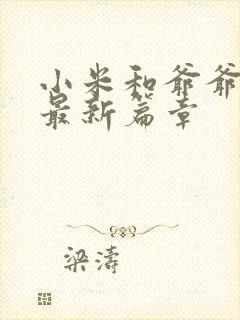 小米和爷爷
最新篇章
梁涛